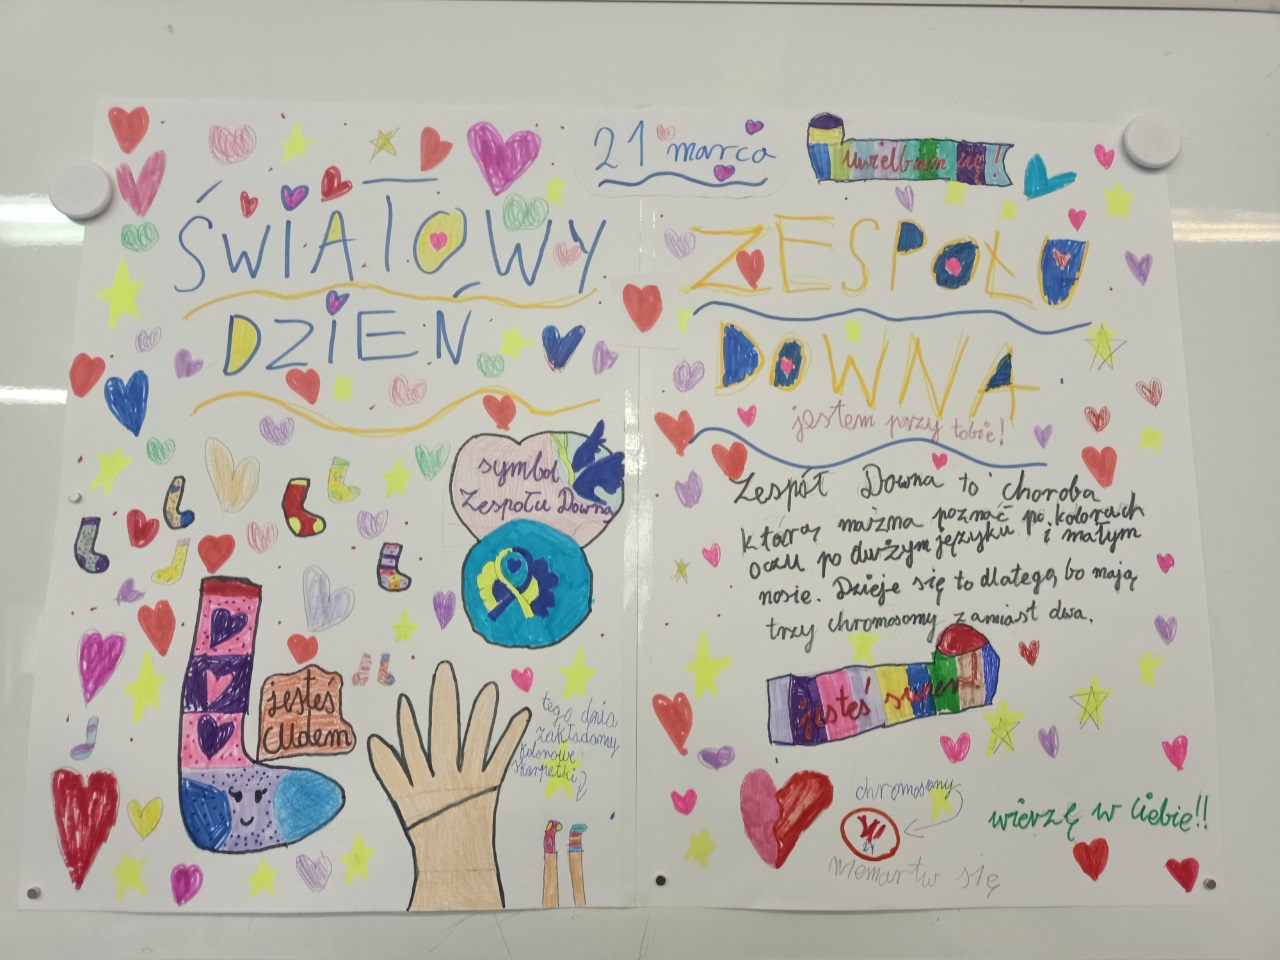 21 marca
uwielbiam cię!
ŚWIATOWY
DZIEŃ
ZESPOŁU
DOWNA
jestem przy tobie!
symbol
Zespołu Downa
Zespół Downa to choroba
którą mażna poznać po kolorach
oczu po dużym języku i małym
nosie. Dzieje się to dlatego bo mają
trzy chromosomy zamiast dwa.
jesteś
cudem
jesteś super!
tego dnia
zakładamy
kolorowe
skarpetki
chromosomy
21
niemartw się
wierzę w Ciebie!!